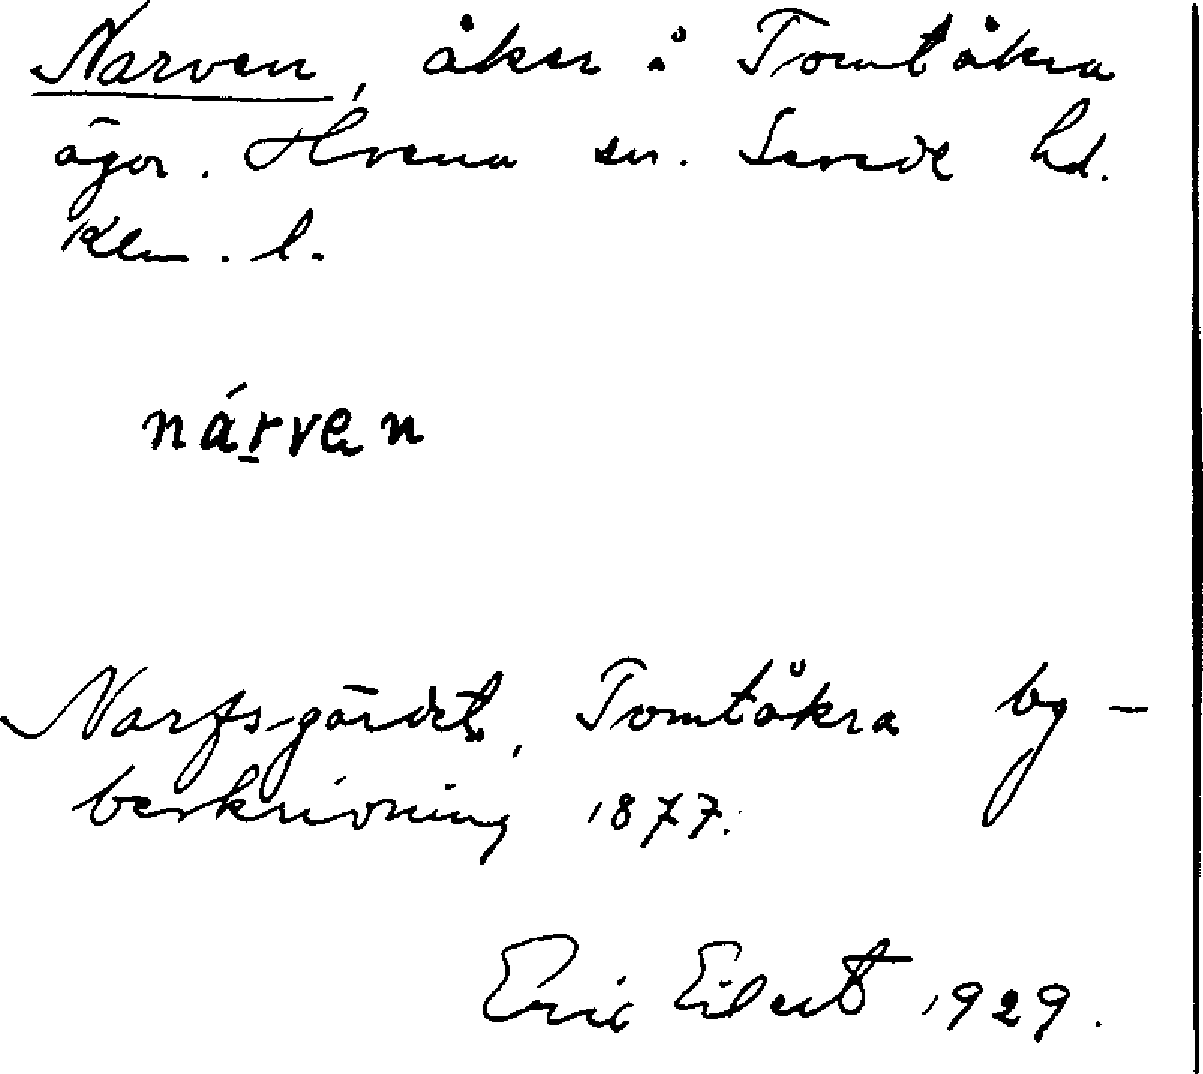 Narven, åker å Tomtåkra
ägor. Hvena sn. Sevede hd.
Klm. l.
nárven
Narfsgärdet, Tomtåkra by-
beskrivning 1877.
Eric Eilert 1929.